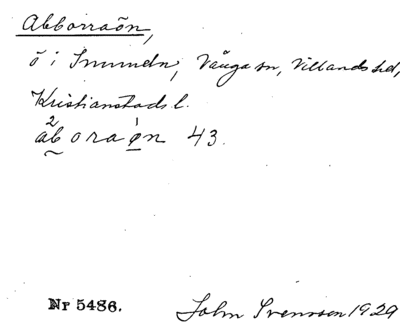 Abborraön,
ö i Immeln, Vånga sn, Villands hd,
Kristianstads l.
åboraøn 43.
Nr 5486.
John Svensson 1929